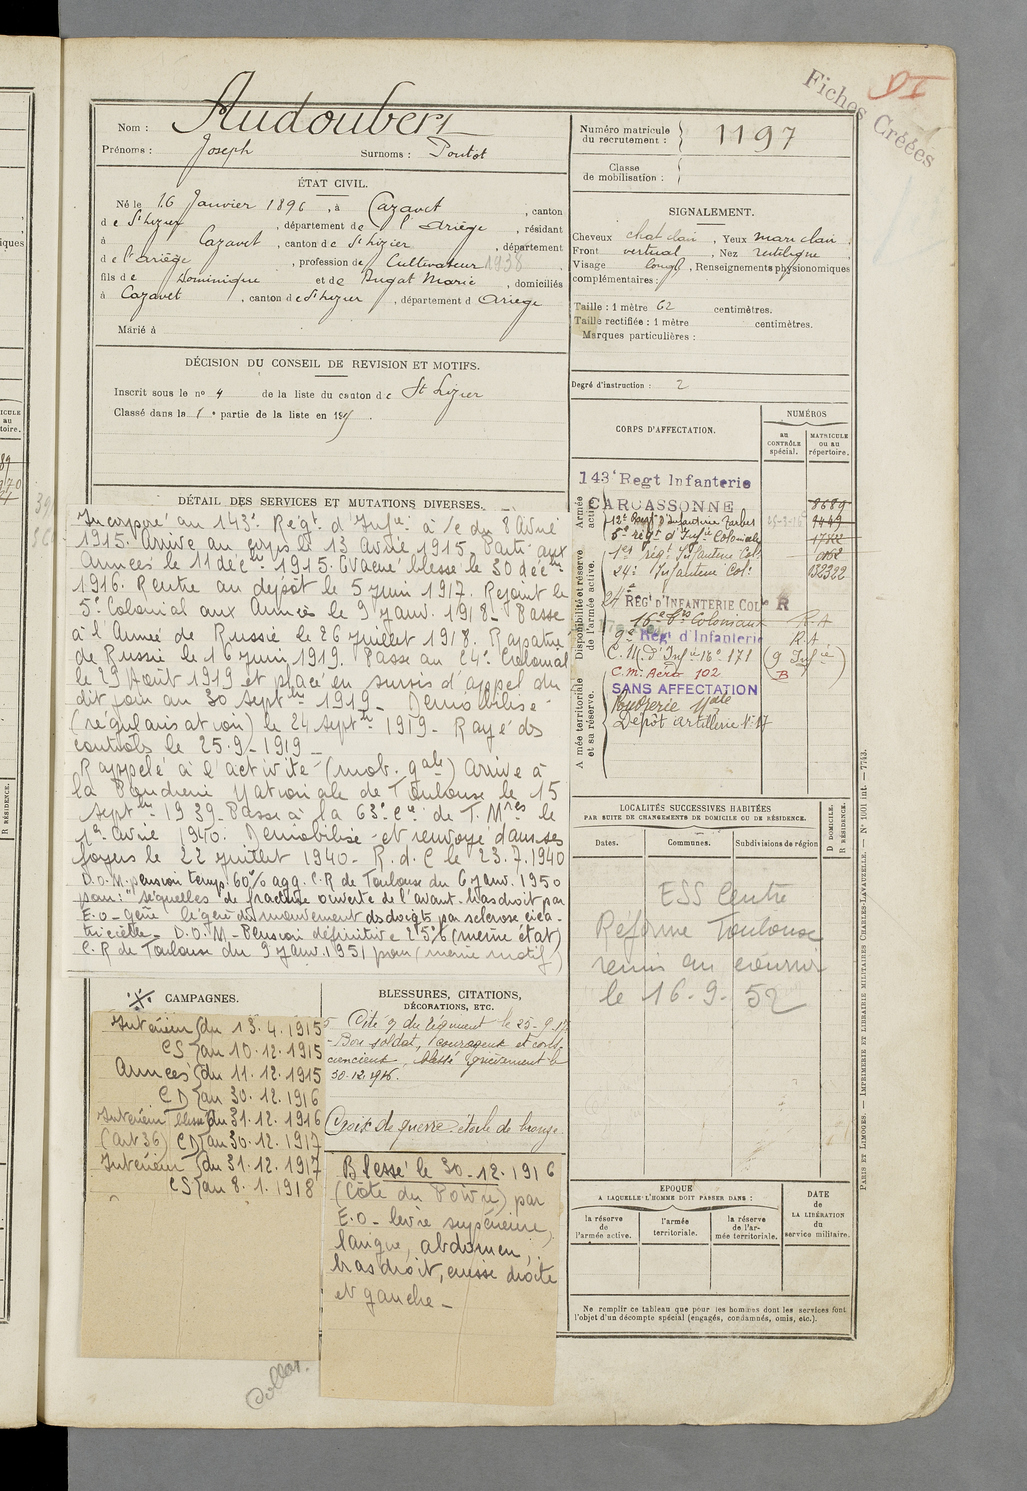 Fiches Créées
Nom : Audoubert
Prénoms : Joseph Surnoms : Pontot
Numéro matricule du recrutement : 1197
Classe de mobilisation :
ÉTAT CIVIL.
Né le 16 Janvier 1896, à Cazavet, canton
de St Lizier, département de l'Ariège, résidant
à Cazavet, canton de St Lizier, département
de l'Ariège, profession de Cultivateur 1938
fils de Dominique et de Dugat Marie, domiciliés
à Cazavet, canton de St Lizier, département d Ariège
Marié à
SIGNALEMENT.
Cheveux chat clair, Yeux marr clair
Front vertical, Nez rectiligne
Visage long, Renseignements physionomiques
complémentaires :
Taille : 1 mètre 62 centimètres.
Taille rectifiée : 1 mètre centimètres.
Marques particulières :
Degré d'instruction : 2
DÉCISION DU CONSEIL DE REVISION ET MOTIFS.
Inscrit sous le no 4 de la liste du canton de St Lizier
Classé dans la 1e partie de la liste en 1915
DÉTAIL DES SERVICES ET MUTATIONS DIVERSES.
Incorporé au 143e Régt d'Infie à /c du 8 Avril
1915. Arrivé au corps le 13 Avril 1915. Parti aux
Armées le 11 déc 1915. Evacué blessé le 30 déc
1916. Rentre au dépôt le 5 Juin 1917. Rejoint le
5e Colonial aux Armées le 9 Janv. 1918 - Passe
à l'Armée de Russie le 26 Juillet 1918. Rapatrié
de Russie le 16 Juin 1919. Passe au 24e Colonial
le 29 Août 1919 et placé en sursis d'appel du
dit jour au 30 Sept 1919 - Démobilisé
(régularisation) le 24 Sept 1919 - Rayé des
contrôles le 25-9-1919 -
Rappelé à l'activité (mob. gale) Arrivé à
la Poudrerie Nationale de Toulouse le 15
Sept 1939 - Passe à la 63e Cie de T. Mres le
1er Avril 1940. Démobilisé et renvoyé dans ses
foyers le 22 Juillet 1940 - R. d. C le 23.7.1940
D.O.M. pension temp. 60% agg. C.R de Toulouse du 6 Janv. 1950
pour : "séquelles de fracture ouverte de l'avant-bras droit par
E.O - gêne légère du mouvement des doigts par sclérose cica-
tricielle - D.O.M - Pension définitive 25% (même état)
C.R de Toulouse du 9 Janv. 1951 pour (même motif)
CORPS D'AFFECTATION.
NUMÉROS
au CONTRÔLE spécial.
MATRICULE ou au répertoire.
Armée active.
Disponibilité et réserve de l'armée active.
Armée territoriale et sa réserve.
143e Regt Infanterie
CARCASSONNE 8689
12e Regt d'Infanterie Tarbes
5e régt d'Infie Coloniale
1er régt Infanterie Col.
24e Infanterie Col. 132322
24e RÉGt D'INFANTERIE COLle R
16e Coloniaux R A
9e Régt d'Infanterie R A
C.M. d'Infie 16e 171 (9 Infie)
C.M. Aéro 102 B
SANS AFFECTATION
Poudrerie Nale
Dépôt Artillerie N° 17
LOCALITÉS SUCCESSIVES HABITÉES
PAR SUITE DE CHANGEMENTS DE DOMICILE OU DE RÉSIDENCE.
D DOMICILE.
R RÉSIDENCE.
Dates. Communes. Subdivisions de région
ESS Centre
Réforme Toulouse
remis au courrier
le 16-9-52
CAMPAGNES.
Intérieur du 13.4.1915
CS au 10.12.1915
Armées du 11.12.1915
CD au 30.12.1916
Intérieur blessé du 31.12.1916
(art 36) CD au 30.12.1917
Intérieur du 31.12.1917
CS au 8.1.1918
BLESSURES, CITATIONS,
DÉCORATIONS, ETC.
Cité O du régiment le 25-9-17
- Bon soldat, courageux et cons-
ciencieux, blessé grièvement le
30.12.1916.
Croix de guerre étoile de bronze
Blessé le 30-12-1916
(Côte du Poivre) par
E.O - lèvre supérieure,
langue, abdomen,
bras droit, cuisse droite
et gauche -
EPOQUE
A LAQUELLE L'HOMME DOIT PASSER DANS :
la réserve de l'armée active.
l'armée territoriale.
la réserve de l'armée territoriale.
DATE de LA LIBÉRATION du service militaire.
Ne remplir ce tableau que pour les hommes dont les services font
l'objet d'un décompte spécial (engagés, condamnés, omis, etc.).
PARIS ET LIMOGES. — IMPRIMERIE ET LIBRAIRIE MILITAIRES CHARLES-LAVAUZELLE. — N° 1001 int. — 7743.